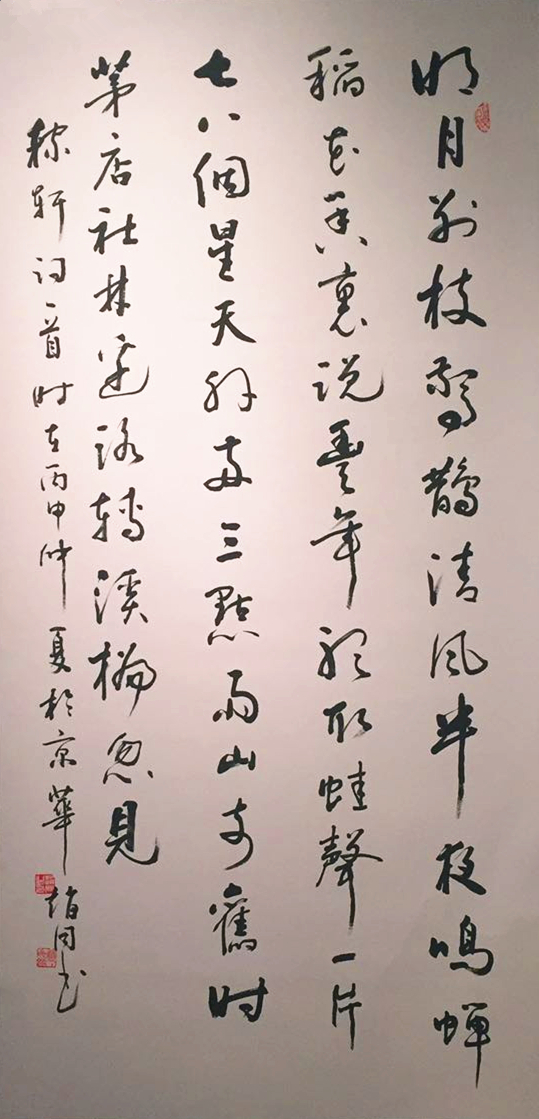 明月別枝驚鵲清風半夜鳴蟬
稻花香裏說豐年聽取蛙聲一片
七八個星天外兩三點雨山前舊时
茅店社林邊路轉溪橋忽見
稼軒詞一首时在丙申仲夏於京華
书